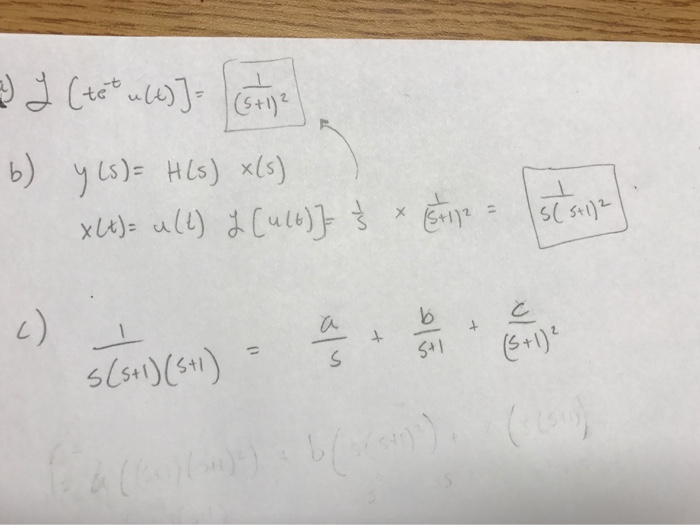 a) L[te^-t u(t)] = 1/(s+1)^2
b) y(s) = H(s) x(s)
x(t) = u(t) L[u(t)] = 1/s × 1/(s+1)^2 = 1/s(s+1)^2
c) 1/s(s+1)(s+1) = a/s + b/s+1 + c/(s+1)^2